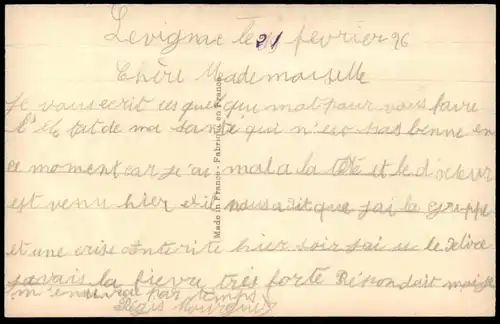 Levignac le 21 fevrier 26
Chère Mademoiselle
Je vous ecrit ces quelque mot pour vous faire
l'etat de ma santé qui n'est pas benne en
ce moment car j'ai mal a la tête et le docteur
est venu hier et il nous a dit que j'ai la grippe
et une crise enterite hier soir j'ai u le delire
javais la fievre très forte Répondait moi je
m'ennuie par temps
Made in France - Fabriqué en France